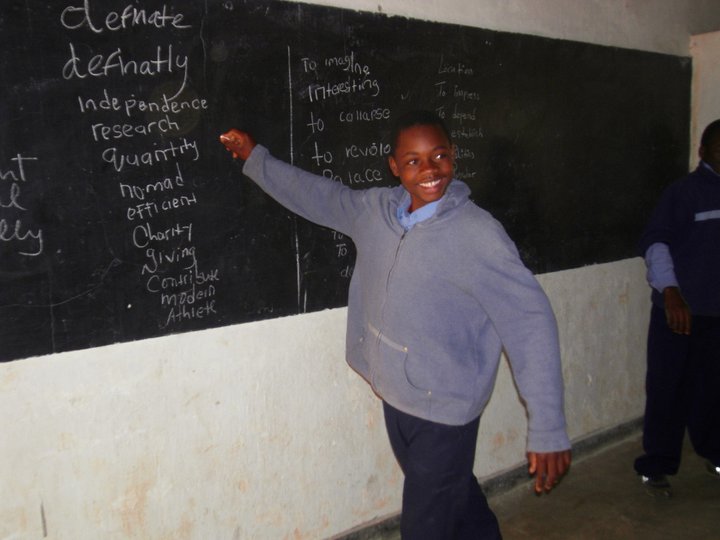 defnate
defnatly
Independence
research
quantity
nomad
efficient
Charity
giving
Contribute
modern
Athlete
To imagine
Interesting
to collapse
to
Palace
To
To
Location
To impress
To depend